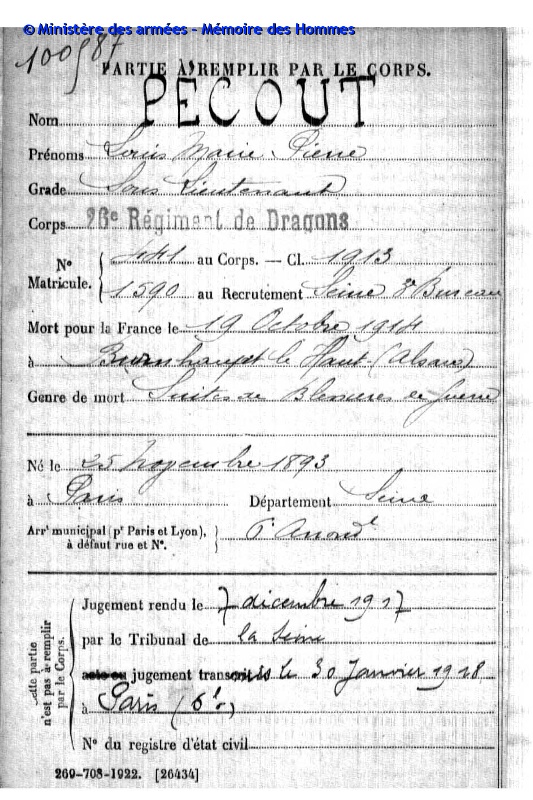 © Ministère des armées - Mémoire des Hommes
PARTIE À REMPLIR PAR LE CORPS.
Nom PECOUT
Prénoms Louis Marie Pierre
Grade Sous Lieutenant
Corps 26e Régiment de Dragons
N° Matricule. 441 au Corps. — Cl. 1913
1590 au Recrutement Seine 3e Bureau
Mort pour la France le 19 Octobre 1914
à Burnhaupt le Haut (Alsace)
Genre de mort Suites de Blessures de Guerre
Né le 25 Novembre 1893
à Paris Département Seine
Arrt municipal (pr Paris et Lyon), à défaut rue et N°. 6e Arrondt
Jugement rendu le 7 décembre 1917
par le Tribunal de la Seine
acte ou jugement transcrit le 30 Janvier 1918
à Paris (6e)
N° du registre d'état civil
Cette partie n'est pas à remplir par le Corps.
269-708-1922. [26434]